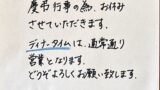 慶弔行事の為、お休み
させていただきます。
ディナータイムは、通常通り
営業となります。
どうぞよろしくお願い致します。